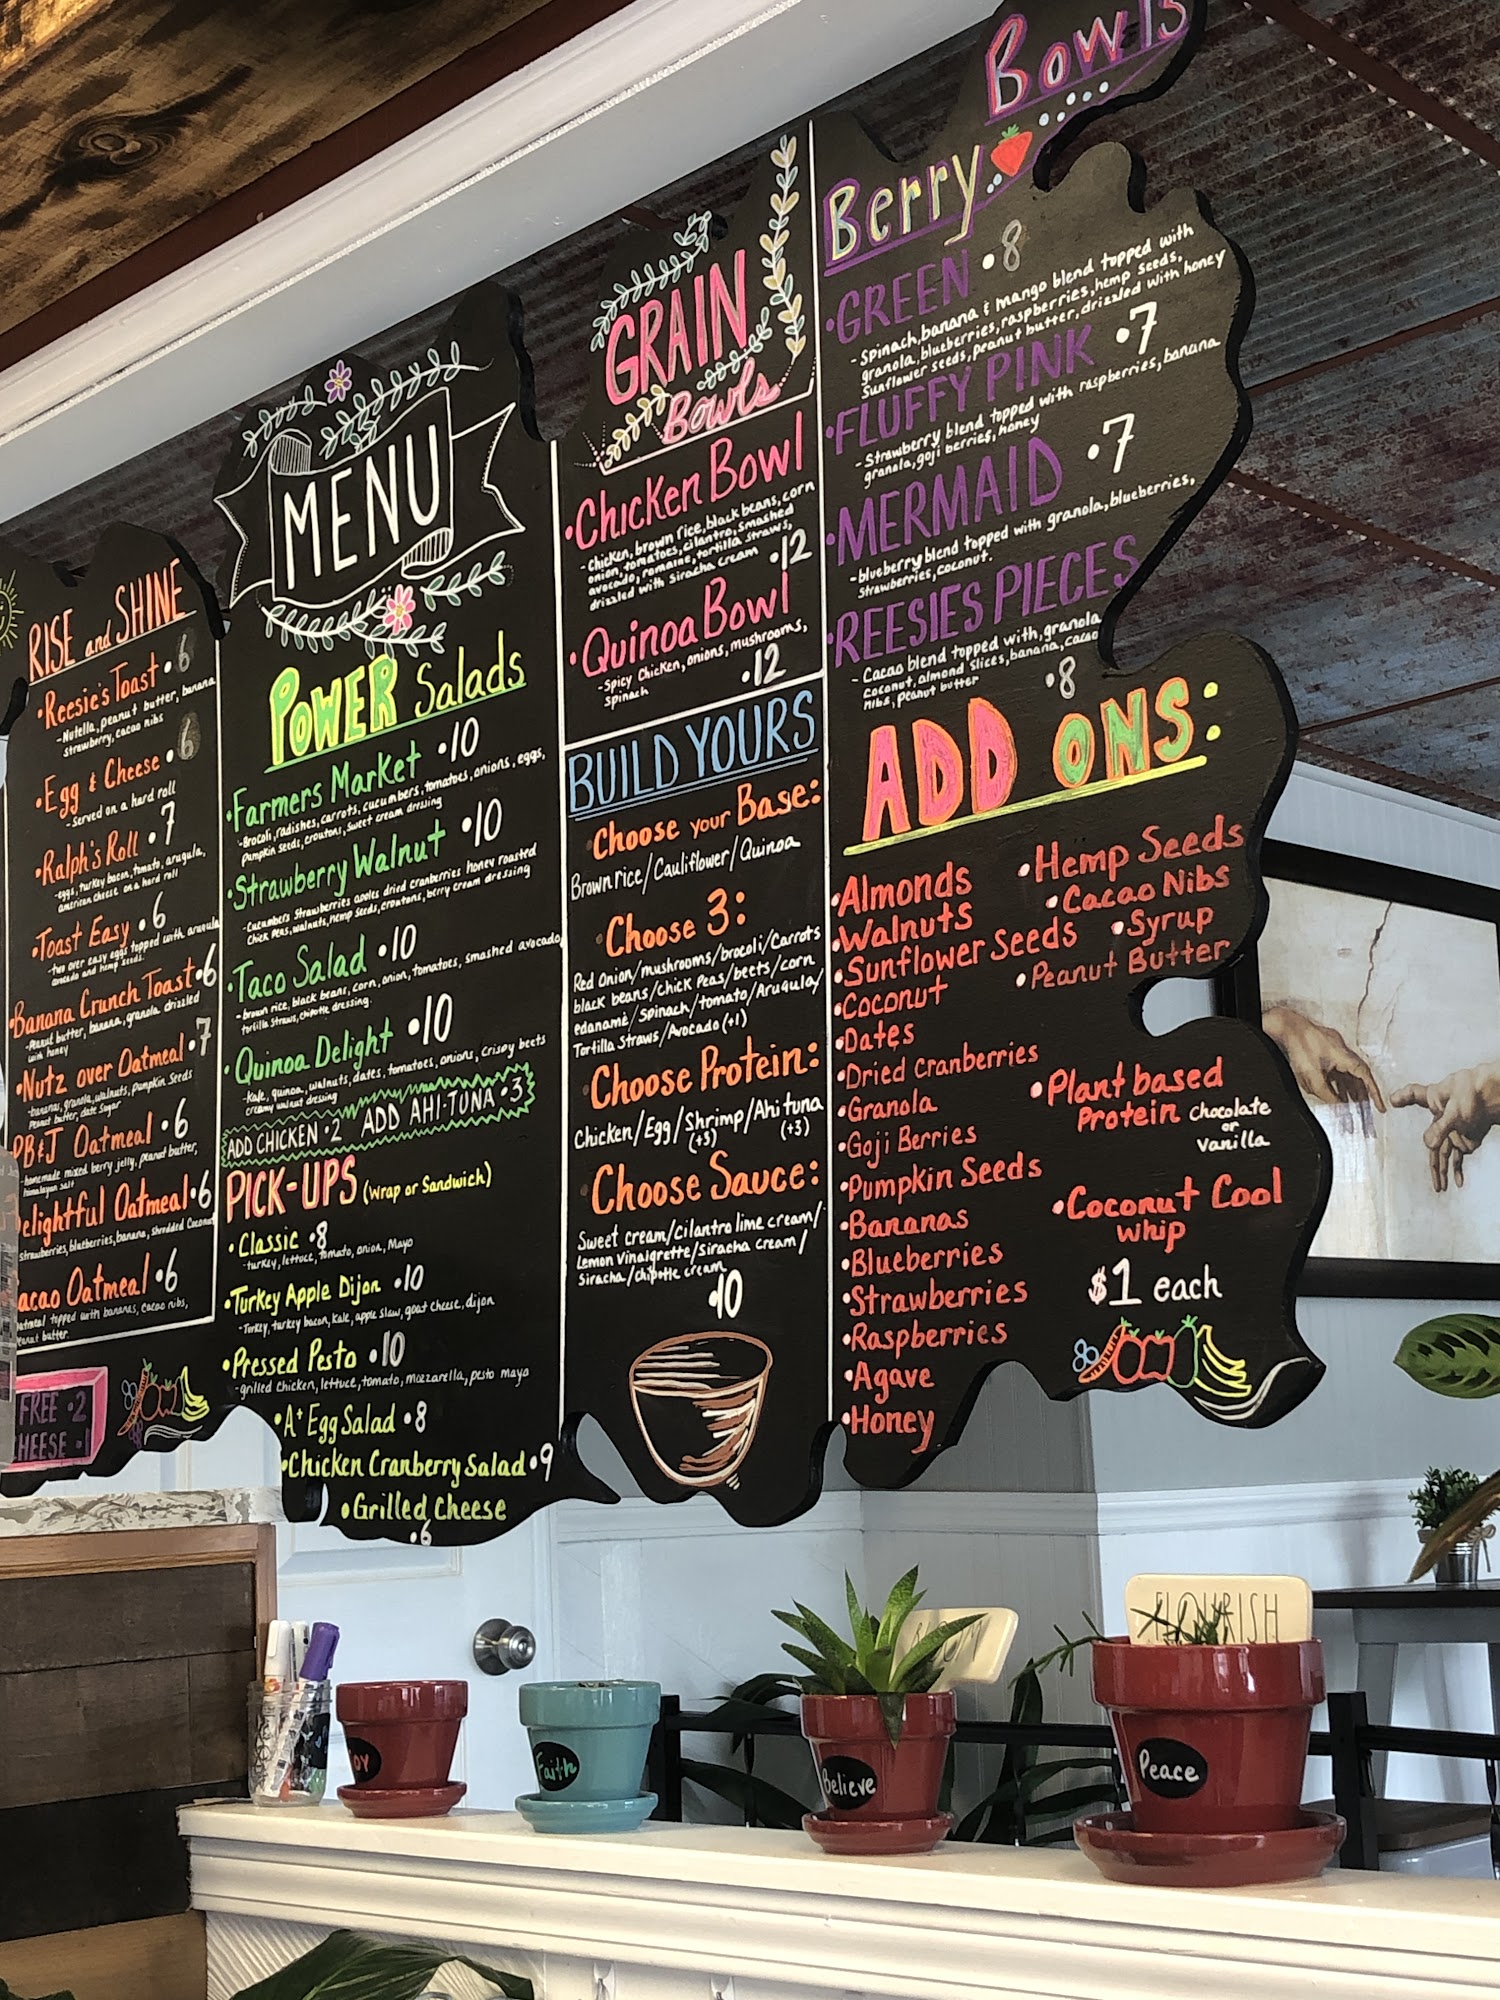 RISE and SHINE
•Reesie's Toast •6
-Nutella, peanut butter, banana,
strawberry, cacao nibs
•Egg & Cheese •6
-Served on a hard roll
•Ralph's Roll •7
-eggs, turkey bacon, tomato, arugula,
american cheese on a hard roll
•Toast Easy •6
-two over easy eggs topped with arugula
avocado and hemp seeds.
•Banana Crunch Toast •6
-Peanut butter, banana, granola drizzled
with honey
•Nutz over Oatmeal •7
-bananas, granola, walnuts, pumpkin seeds
Peanut butter, date sugar
PB&J Oatmeal •6
-homemade mixed berry jelly, peanut butter,
himalayan salt
elightful Oatmeal •6
strawberries, blueberries, banana, shredded Coconut
acao Oatmeal •6
oatmeal topped with bananas, cacao nibs,
peanut butter.
FREE •2
HEESE •1
MENU
POWER Salads
•Farmers Market •10
-Brocoli, radishes, carrots, cucumbers, tomatoes, onions, eggs,
pumpkin seeds, croutons, sweet cream dressing
•Strawberry Walnut •10
-Cucumbers Strawberries apples dried cranberries honey roasted
Chick Peas, walnuts, hemp seeds, croutons, berry cream dressing
•Taco Salad •10
-brown rice, black beans, corn, onion, tomatoes, smashed avocado,
tortilla straws, chipotle dressing.
•Quinoa Delight •10
-Kale, quinoa, walnuts, dates, tomatoes, onions, crispy beets
creamy walnut dressing
ADD CHICKEN •2 ADD AHI-TUNA •3
PICK-UPS (wrap or Sandwich)
•Classic •8
-turkey, lettuce, tomato, onion, Mayo
•Turkey Apple Dijon •10
-Turkey, turkey bacon, kale, apple slaw, goat cheese, dijon
•Pressed Pesto •10
-grilled chicken, lettuce, tomato, mozzarella, pesto mayo
•A+ Egg Salad •8
•Chicken Cranberry Salad •9
•Grilled Cheese
•6
GRAIN
Bowls
•Chicken Bowl
-Chicken, brown rice, black beans, corn
onion, tomatoes, cilantro, smashed
avocado, romaine, tortilla straws,
drizzled with Siracha cream •12
•Quinoa Bowl
-Spicy Chicken, onions, mushrooms,
spinach •12
BUILD YOURS
Choose your Base:
Brown rice/Cauliflower/Quinoa
•Choose 3:
Red Onion/mushrooms/brocoli/Carrots
black beans/chick Peas/beets/corn
edanamé/Spinach/tomato/Arugula/
Tortilla Straws/Avocado (+1)
Choose Protein:
Chicken/Egg/Shrimp/Ahi tuna
(+3) (+3)
Choose Sauce:
Sweet cream/cilantro lime cream/
Lemon Vinaigrette/siracha cream/
Siracha/chipotle cream
•10
Berry Bowls
•GREEN •8
-Spinach, banana & mango blend topped with
granola, blueberries, raspberries, hemp seeds,
Sunflower seeds, peanut butter, drizzled with honey
•FLUFFY PINK •7
-Strawberry blend topped with raspberries, banana
granola, goji berries, honey
•MERMAID •7
-blueberry blend topped with granola, blueberries,
Strawberries, coconut.
•REESIES PIECES
-Cacao blend topped with, granola
coconut, almond slices, banana, cacao
nibs, peanut butter •8
ADD ONS:
•Almonds
•Walnuts
•Sunflower Seeds
•Coconut
•Dates
•Dried Cranberries
•Granola
•Goji Berries
•Pumpkin Seeds
•Bananas
•Blueberries
•Strawberries
•Raspberries
•Agave
•Honey
•Hemp Seeds
•Cacao Nibs
•Syrup
•Peanut Butter
•Plant based
Protein chocolate
or
Vanilla
•Coconut Cool
Whip
$1 each
FLOURISH
Joy
Faith
Believe
Peace